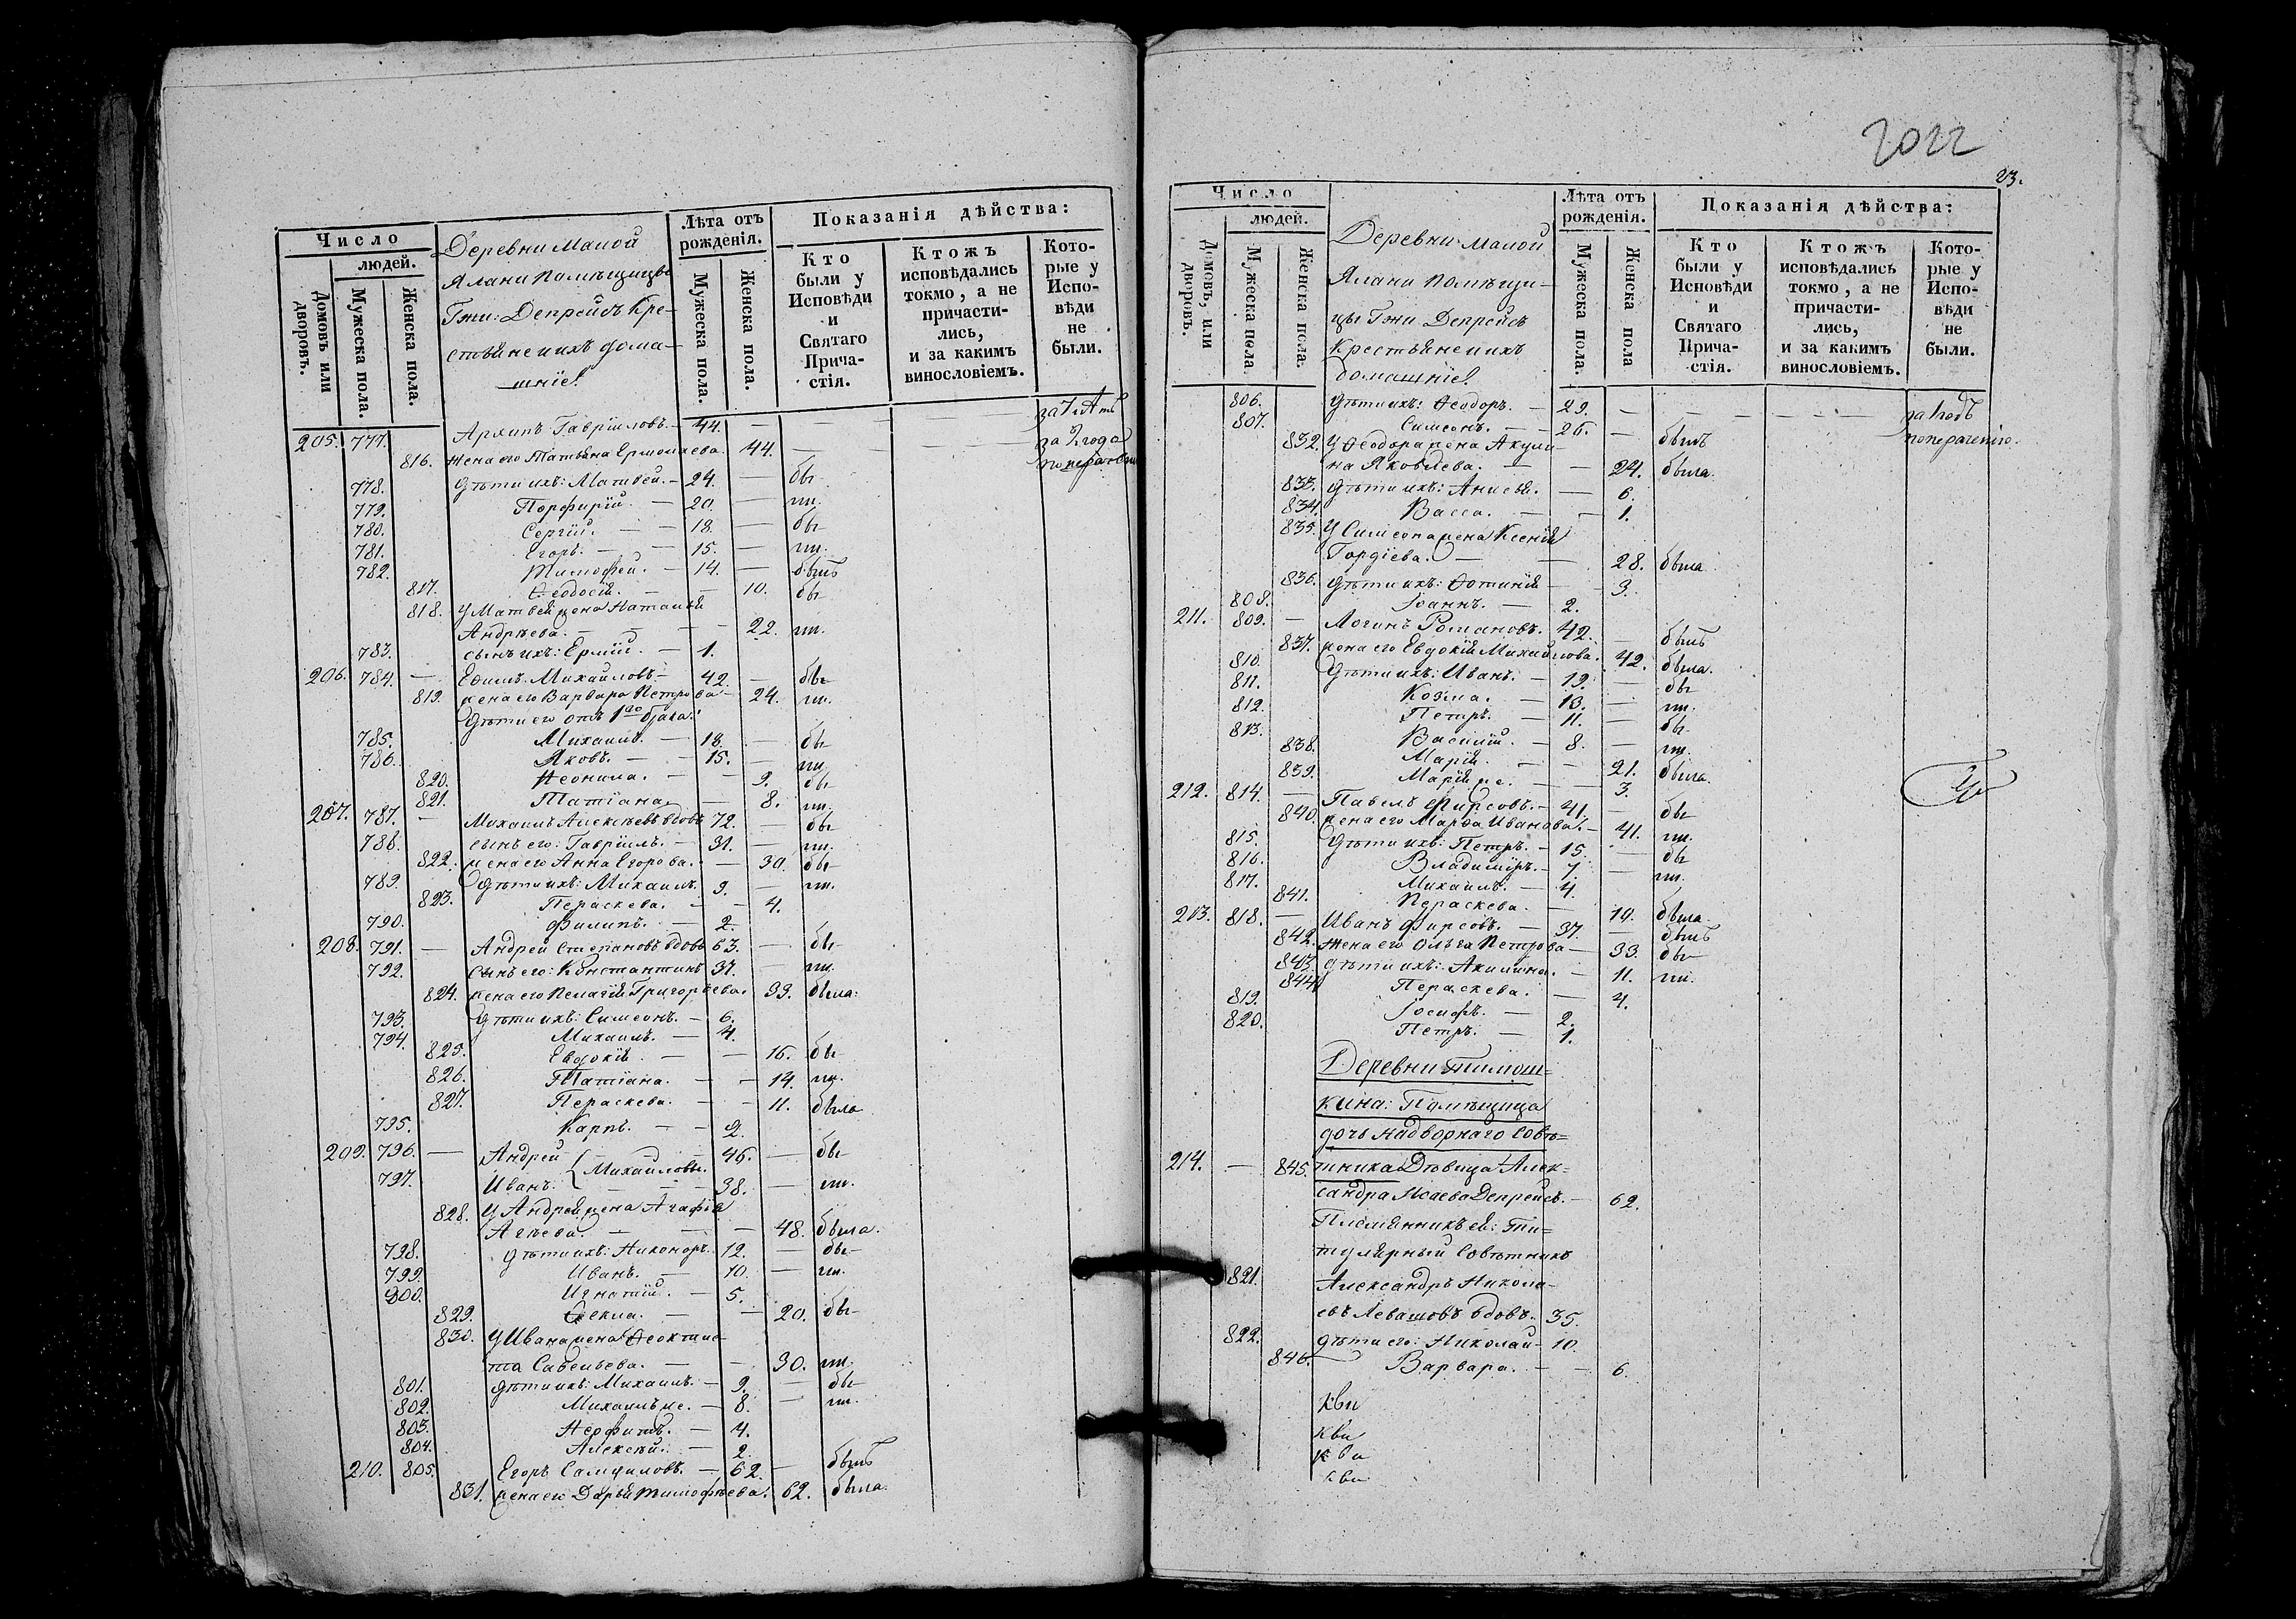 Число
людей.
Домовъ или дворовъ.
Мужеска пола.
Женска пола.
Деревни Малой
Ялани помѣщицы
Гжи: Депрейсъ Кре-
стьяне и ихъ дома-
шніе.
Лѣта отъ рожденія.
Мужеска пола.
Женска пола.
Показанія дѣйства:
Кто были у Исповѣди и Святаго Прича- стія.
Ктожъ исповѣдались токмо, а не причасти- лись, и за какимъ винословіемъ.
Кото- рые у Испо- вѣди не были.
205. 777. Архипъ Гавріиловъ. — 44. —
816. жена его Татьяна Ермолаева. 44. — за 2 года
778. дѣти ихъ: Матвей. — 24. — бы
779. Порфирій. — 20. — ли.
780. Сергій. — 18. — бы
781. Егоръ. — 15. — ли.
782. Тимофей. — 14. — былъ
817. Ѳеодосія. — 10. бы
818. У Матвея жена Наталья
Андрѣева. — 22. ли.
783. сынъ ихъ: Ермій. — 1.
206. 784. — Ефимъ Михайловъ — 42. — бы
819. жена его Варвара Петрова — 24. ли.
дѣти его отъ 1го брака:
785. Михаилъ. — 18. — бы
786. Яковъ. — 15. — ли.
820. Неонила. — 9. бы
821. Татіана. — 8. ли.
207. 787. — Михаилъ Алексѣевъ вдовъ 72. — бы
788. сынъ его: Гавріилъ. — 31. — ли.
822. жена его Анна Егорова. — 30. бы
789. дѣти ихъ: Михаилъ. 9. — ли.
823. Пераскева. — 4.
790. Филипъ. — 2.
208. 791. — Андрей Степановъ вдовъ 63. — бы
792. сынъ его: Константинъ 37. — ли.
824. жена его Пелагія Григорьева. 39. была.
793. дѣти ихъ: Симеонъ. — 6.
794. Михаилъ. — 4.
825. Евдокія. — 16. бы
826. Татіана. — 14. ли.
827. Пераскева. — 11. была
795. Карпъ. — 2.
209. 796. — Андрей } Михайловы. 46. — бы
797. Иванъ. 38. — ли.
828. У Андрея жена Агафія
Агѣева. — 48. была.
798. дѣти ихъ: Никоноръ. 12. — бы
799. Иванъ. — 10. — ли.
800. Игнатій. — 5.
829. Ѳекла. — 20. бы
830. У Ивана жена Ѳеоктис-
та Савельева. — 30. ли.
801. дѣти ихъ: Михаилъ. — 9. — бы
802. Михаилъ же. — 8. — ли.
803. — 4.
804. Алексѣй. — 2.
210. 805. Егоръ Самуиловъ. — 62. — былъ
831. жена его Дарья Тимофѣева. 62. была.
2022
23.
Число
людей.
Домовъ, или дворовъ.
Мужеска пола
Женска пола.
Деревни Малой
Ялани помѣщи-
цы Гжи Депрейсъ
Крестьяне и ихъ
домашніе.
Лѣта отъ рожденія.
Мужеска пола.
Женска пола
Показанія дѣйства:
Кто были у Исповѣди и Святаго Прича- стія.
Ктожъ исповѣдались токмо, а не причасти- лись, и за какимъ винословіемъ.
Кото- рые у Испо- вѣди не были.
806. дѣти ихъ: Ѳеодоръ. — 29. — за 1 годъ
807. Симеонъ. — 26. — былъ
832. У Ѳеодора жена Акули-
на Яковлева. — 24. была.
833. дѣти ихъ: Анисья. — 6.
834. Васса. — 1.
835. У Симеона жена Ксенія
Гордіева. — 28. была
836. дѣти ихъ: Фотинія — 3.
808. Іоаннъ. — 2.
211. 809. — Логинъ Романовъ. 42. — былъ
837. жена его Евдокія Михайлова. 42. была.
810. дѣти ихъ: Иванъ. — 19. — бы
811. Козма. — 13. — ли.
812. Петръ. — 11. — бы
813. Василій. — 8. — ли.
838. Марія. — 21. была.
839. Марія же. — 3.
212. 814. — Павелъ Фирсовъ. — 41. — бы
840. жена его Марѳа Иванова. — 41. ли.
815. дѣти ихъ: Петръ. — 15. — бы
816. Владиміръ. — 7. — ли.
817. Михаилъ. — 4.
841. Пераскева. — 19. была.
213. 818. — Иванъ Фирсовъ. — 37. — былъ
842. жена его Ольга Петрова — 33. бы
843. дѣти ихъ: Акилина. — 11. ли.
844. Пераскева. — 4.
819. Іосифъ. — 2.
820. Петръ. — 1.
Деревни Тимош=
кина: Помѣщица
дочь Надворнаго Совѣ=
214. — 845. тника Дѣвица Алек=
сандра Исаева Депрейсъ. — 62.
Племянникъ ея: Ти=
тулярный Совѣтникъ
821. Александръ Никола-
евъ Левашовъ вдовъ. 35.
822. дѣти его: Николай — 10.
846. Варвара. — 6.